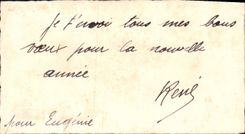 je t'envoi tous mes bons
vœux pour la nouvelle
année
René
pour Eugénie